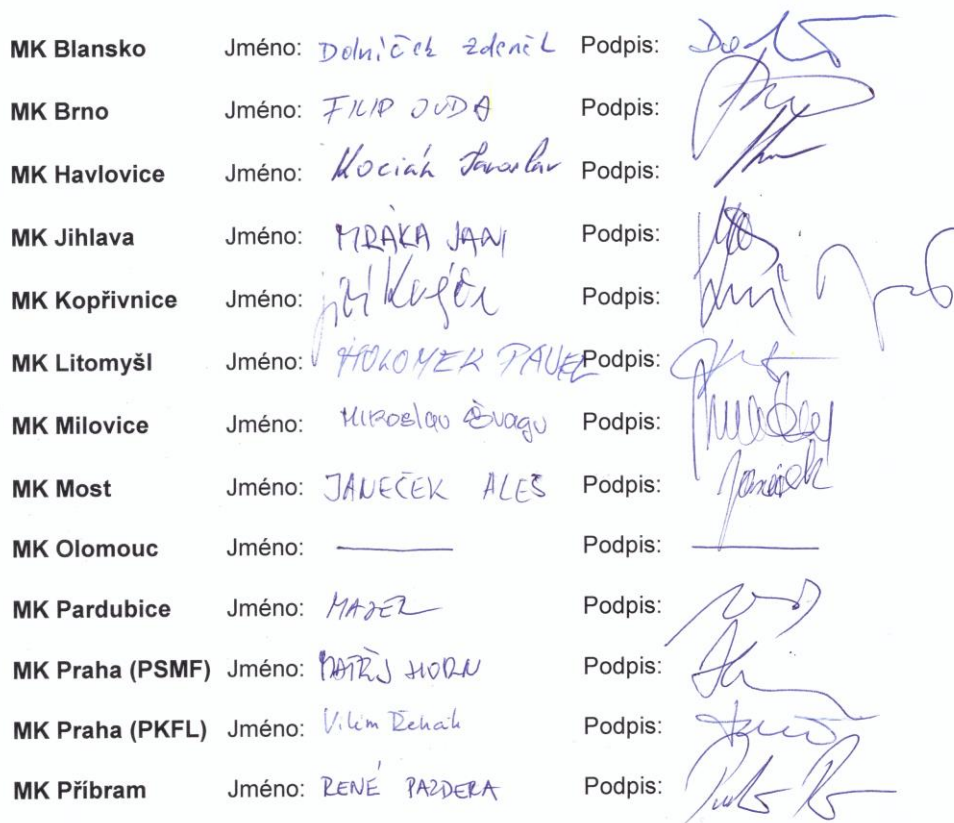 MK Blansko Jméno: Dolníček Zdeněk Podpis:
MK Brno Jméno: FILIP JUDA Podpis:
MK Havlovice Jméno: Kocián Jaroslav Podpis:
MK Jihlava Jméno: MRÁKA JAN Podpis:
MK Kopřivnice Jméno: Jiří Podpis:
MK Litomyšl Jméno: HOLOMEK PAVEL Podpis:
MK Milovice Jméno: Miroslav Podpis:
MK Most Jméno: JANEČEK ALEŠ Podpis: Janeček
MK Olomouc Jméno: Podpis:
MK Pardubice Jméno: MAJER Podpis:
MK Praha (PSMF) Jméno: MATĚJ HORN Podpis:
MK Praha (PKFL) Jméno: Vilím Řehák Podpis:
MK Příbram Jméno: RENÉ PAZDERA Podpis: